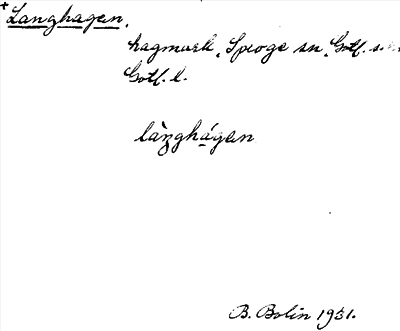 +Langhagen.
hagmark, Sproge sn, Gotl. s. hd
Gotl. l.
làŋghágen
B. Bolin 1931.